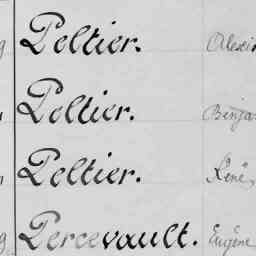 Peltier. Alexi
Peltier. Binja
Peltier. Réné
Percevault. Eugène